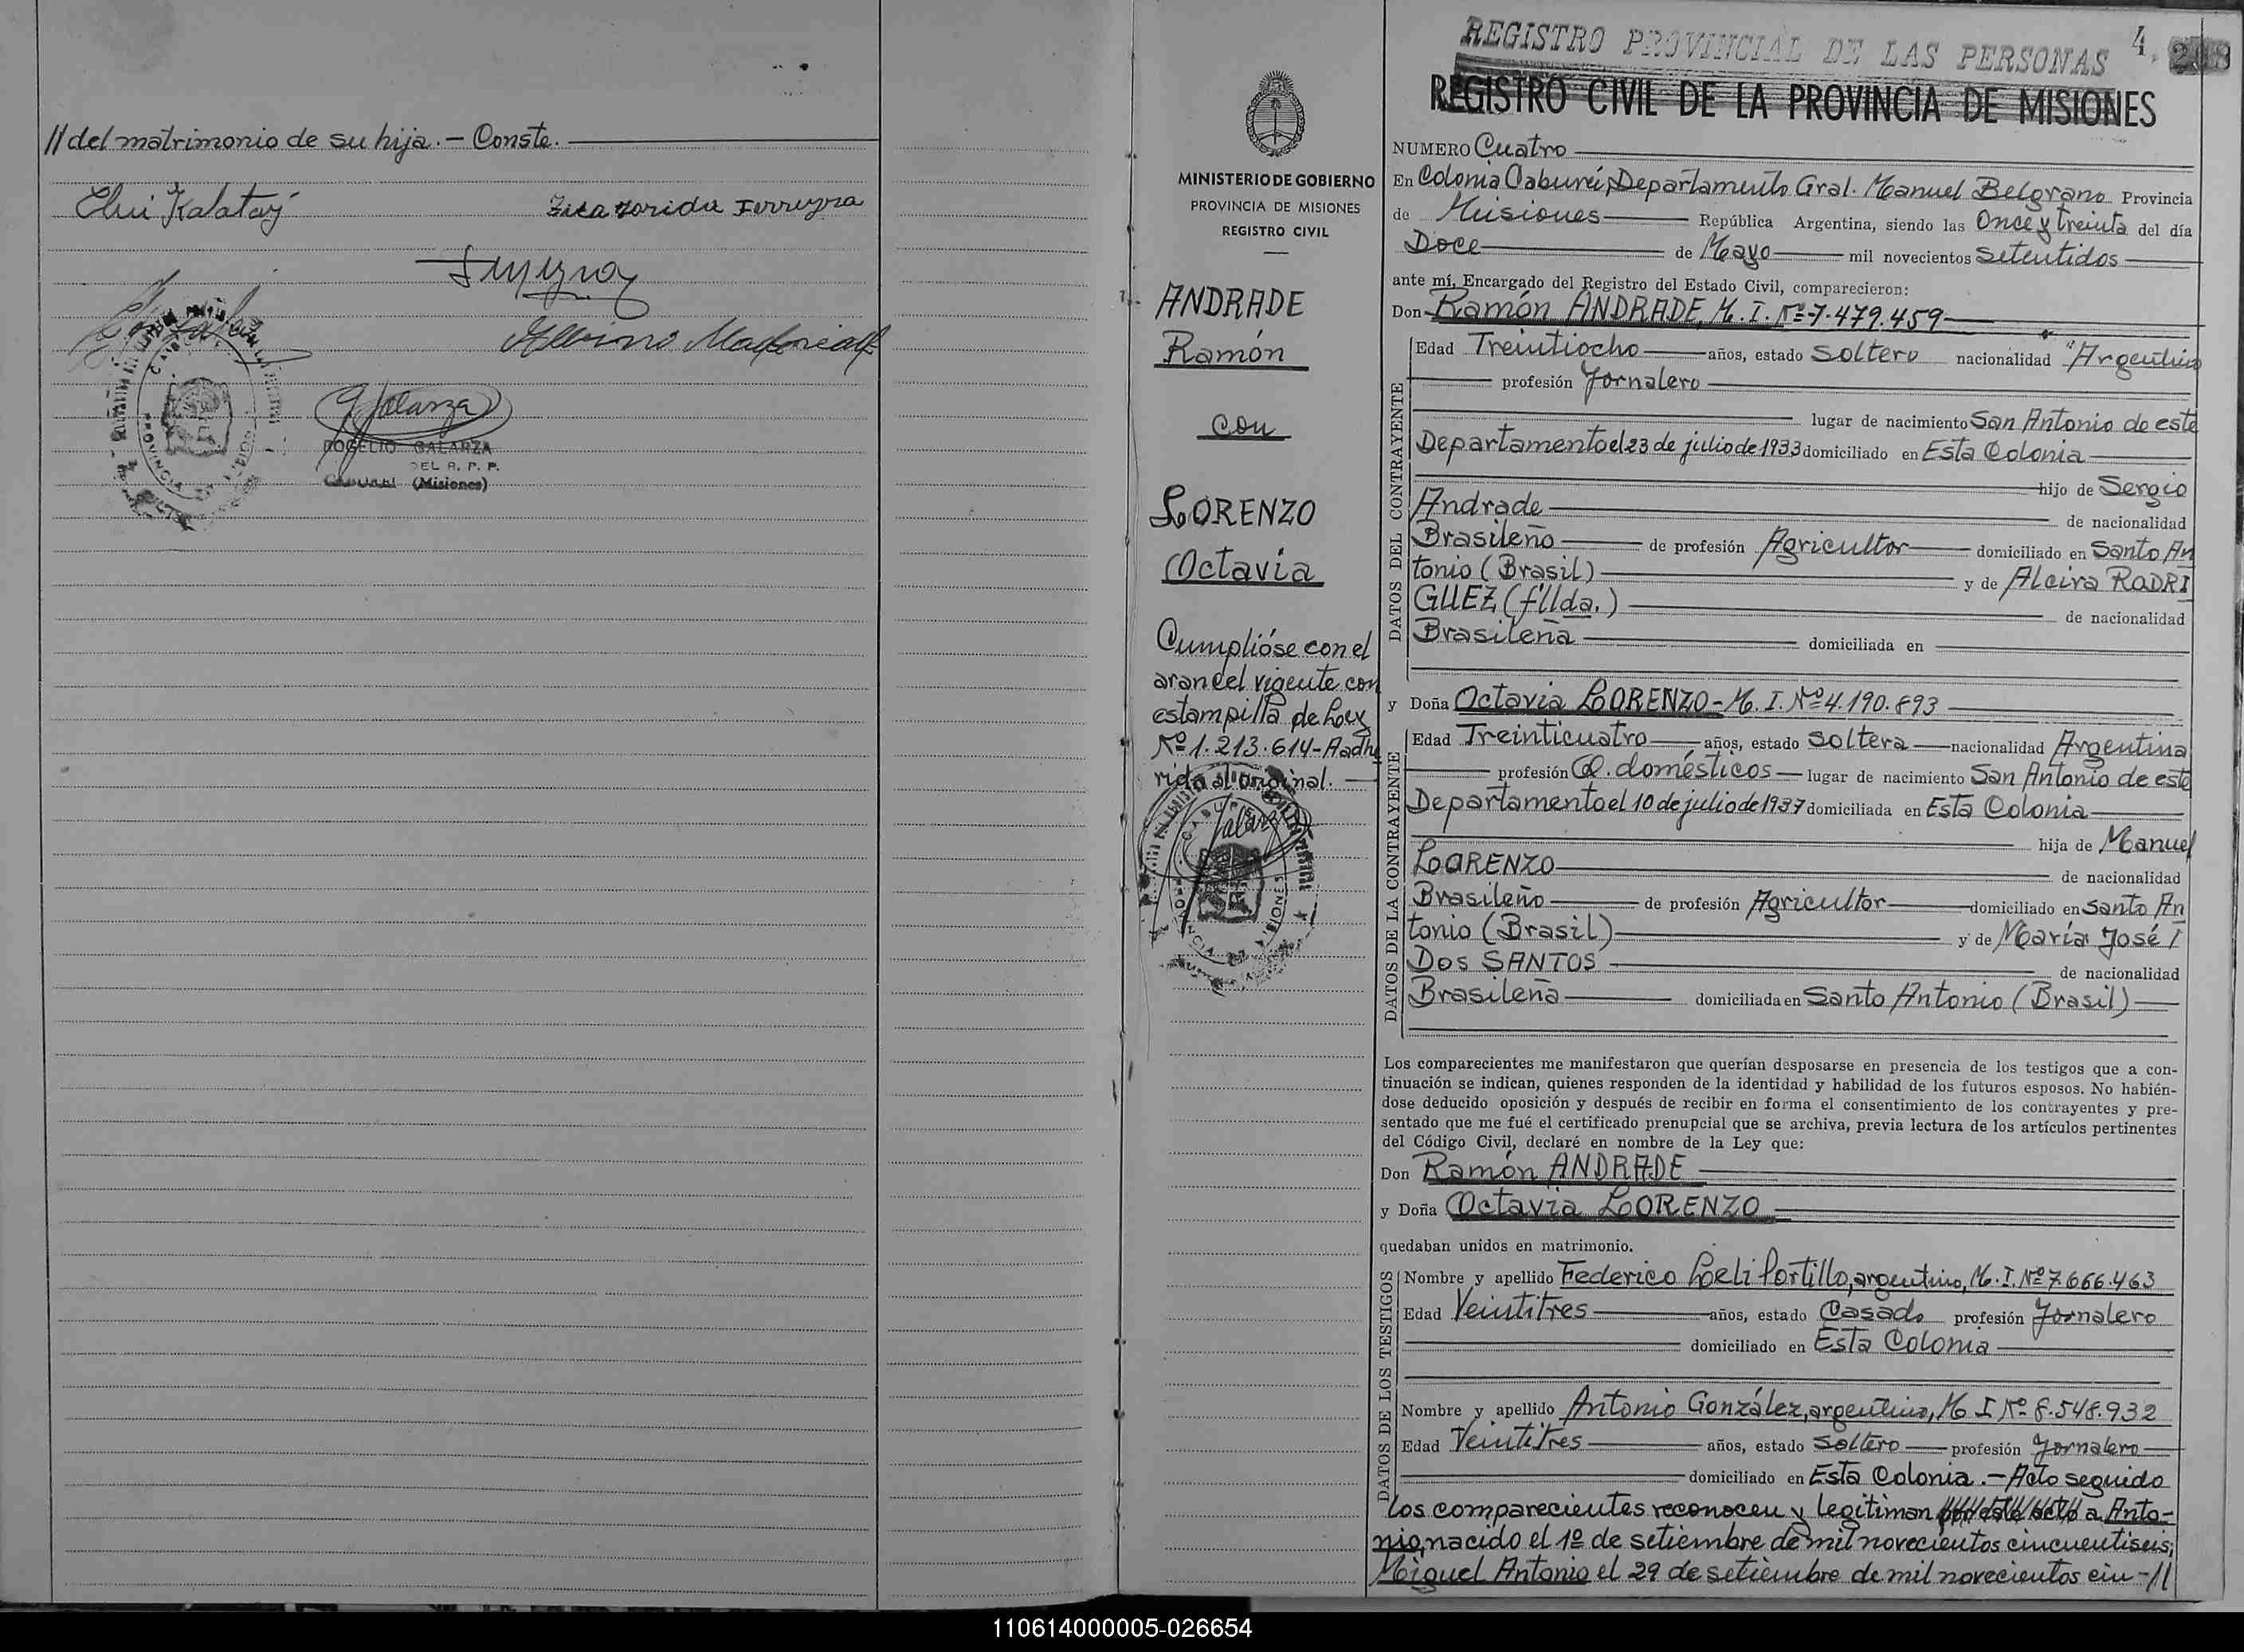 // del matrimonio de su hija. - Conste.
Ferreyra
ROGELIO GALARZA
DEL R. P. P.
(Misiones)
MINISTERIO DE GOBIERNO
PROVINCIA DE MISIONES
REGISTRO CIVIL
ANDRADE
Ramón
con
LORENZO
Octavia
Cumplióse con el
arancel vigente con
estampilla de Ley
Nº 1.213.614-Aadhe
rida al original.
REGISTRO PROVINCIAL DE LAS PERSONAS 4
REGISTRO CIVIL DE LA PROVINCIA DE MISIONES
NUMERO Cuatro
En Colonia Caburei, Departamento Gral. Manuel Belgrano Provincia
de Misiones República Argentina, siendo las Once y treinta del día
Doce de Mayo mil novecientos Setentidos
ante mí, Encargado del Registro del Estado Civil, comparecieron:
Don Ramón ANDRADE, M. I. Nº 7.479.459
DATOS DEL CONTRAYENTE
Edad Treintiocho años, estado Soltero nacionalidad Argentino
profesión Jornalero
lugar de nacimiento San Antonio de este
Departamento el 23 de julio de 1933 domiciliado en Esta Colonia
hijo de Sergio
Andrade de nacionalidad
Brasileño de profesión Agricultor domiciliado en Santo An
tonio (Brasil) y de Alcira RODRI
GUEZ (f'llda.) de nacionalidad
Brasileña domiciliada en
y Doña Octavia LORENZO - M. I. Nº 4.190.893
DATOS DE LA CONTRAYENTE
Edad Treinticuatro años, estado Soltera nacionalidad Argentina
profesión Q. domésticos lugar de nacimiento San Antonio de este
Departamento el 10 de julio de 1937 domiciliada en Esta Colonia
hija de Manuel
LORENZO de nacionalidad
Brasileño de profesión Agricultor domiciliado en Santo An
tonio (Brasil) y de María José
Dos SANTOS de nacionalidad
Brasileña domiciliada en Santo Antonio (Brasil)
Los comparecientes me manifestaron que querían desposarse en presencia de los testigos que a con-
tinuación se indican, quienes responden de la identidad y habilidad de los futuros esposos. No habién-
dose deducido oposición y después de recibir en forma el consentimiento de los contrayentes y pre-
sentado que me fué el certificado prenupcial que se archiva, previa lectura de los artículos pertinentes
del Código Civil, declaré en nombre de la Ley que:
Don Ramón ANDRADE
y Doña Octavia LORENZO
quedaban unidos en matrimonio.
DATOS DE LOS TESTIGOS
Nombre y apellido Federico Loeli Portillo, argentino, M. I. Nº 7.666.463
Edad Veintitres años, estado Casado profesión Jornalero
domiciliado en Esta Colonia
Nombre y apellido Antonio González, argentino, M I Nº 8.548.932
Edad Veintitres años, estado Soltero profesión Jornalero
domiciliado en Esta Colonia. - Acto seguido
los comparecientes reconocen y legitiman por este acto a Anto-
nio, nacido el 1º de setiembre de mil novecientos cincuentiseis;
Miguel Antonio el 29 de setiembre de mil novecientos cin-//
110614000005-026654